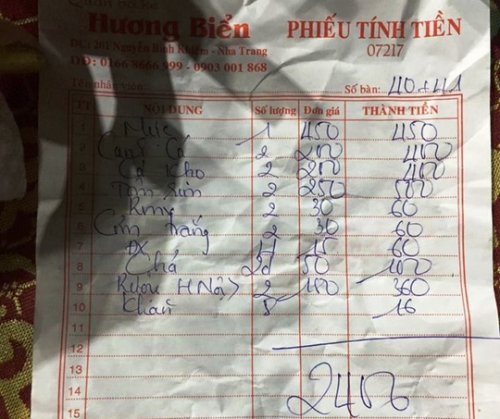 Hương Biển
PHIẾU TÍNH TIỀN
ĐC: 201 Nguyễn Bỉnh Khiêm - Nha Trang
07217
DĐ: 0166 8666 999 - 0903 001 868
Tên nhân viên:
Số bàn: 40+41
TT NỘI DUNG Số lượng Đơn giá THÀNH TIỀN
1 Mực 1 450 450
2 Canh Cá 2 200 400
3 Cá Kho 2 200 400
4 2 250 500
5 2 30 60
6 Cơm trắng 2 30 60
7 15 60
8 Chả 50
9 Rượu H Nội 2 180 360
10 Khăn 8 16
11
12
13
14
15
2400